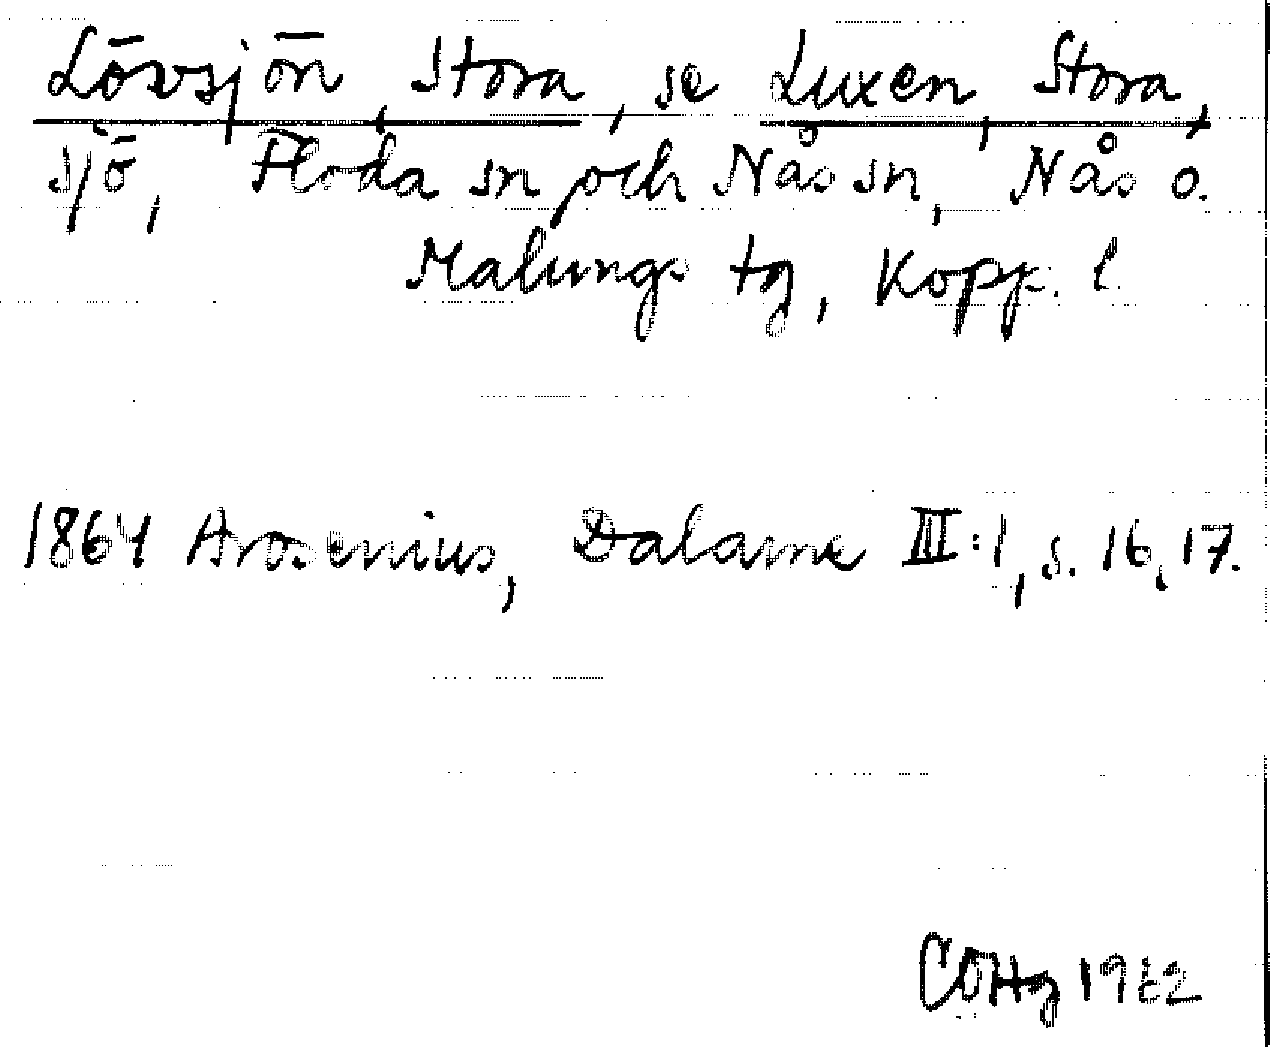 Lövsjön, Stora, se Luxen, Stora,
sjö, Floda sn och Nås sn, Nås o.
Malungs tg, Kopp. l.
1864 Arosenius, Dalarne III:1, s. 16, 17.
COHg 1962